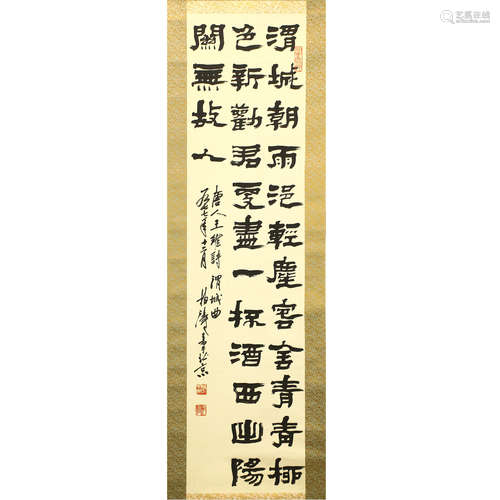 渭城朝雨浥輕塵客舍青青柳
色新勸君更盡一杯酒西出陽
關無故人
唐人王維詩渭城曲
一九七七年十二月柏濤書北京
艺狐在线